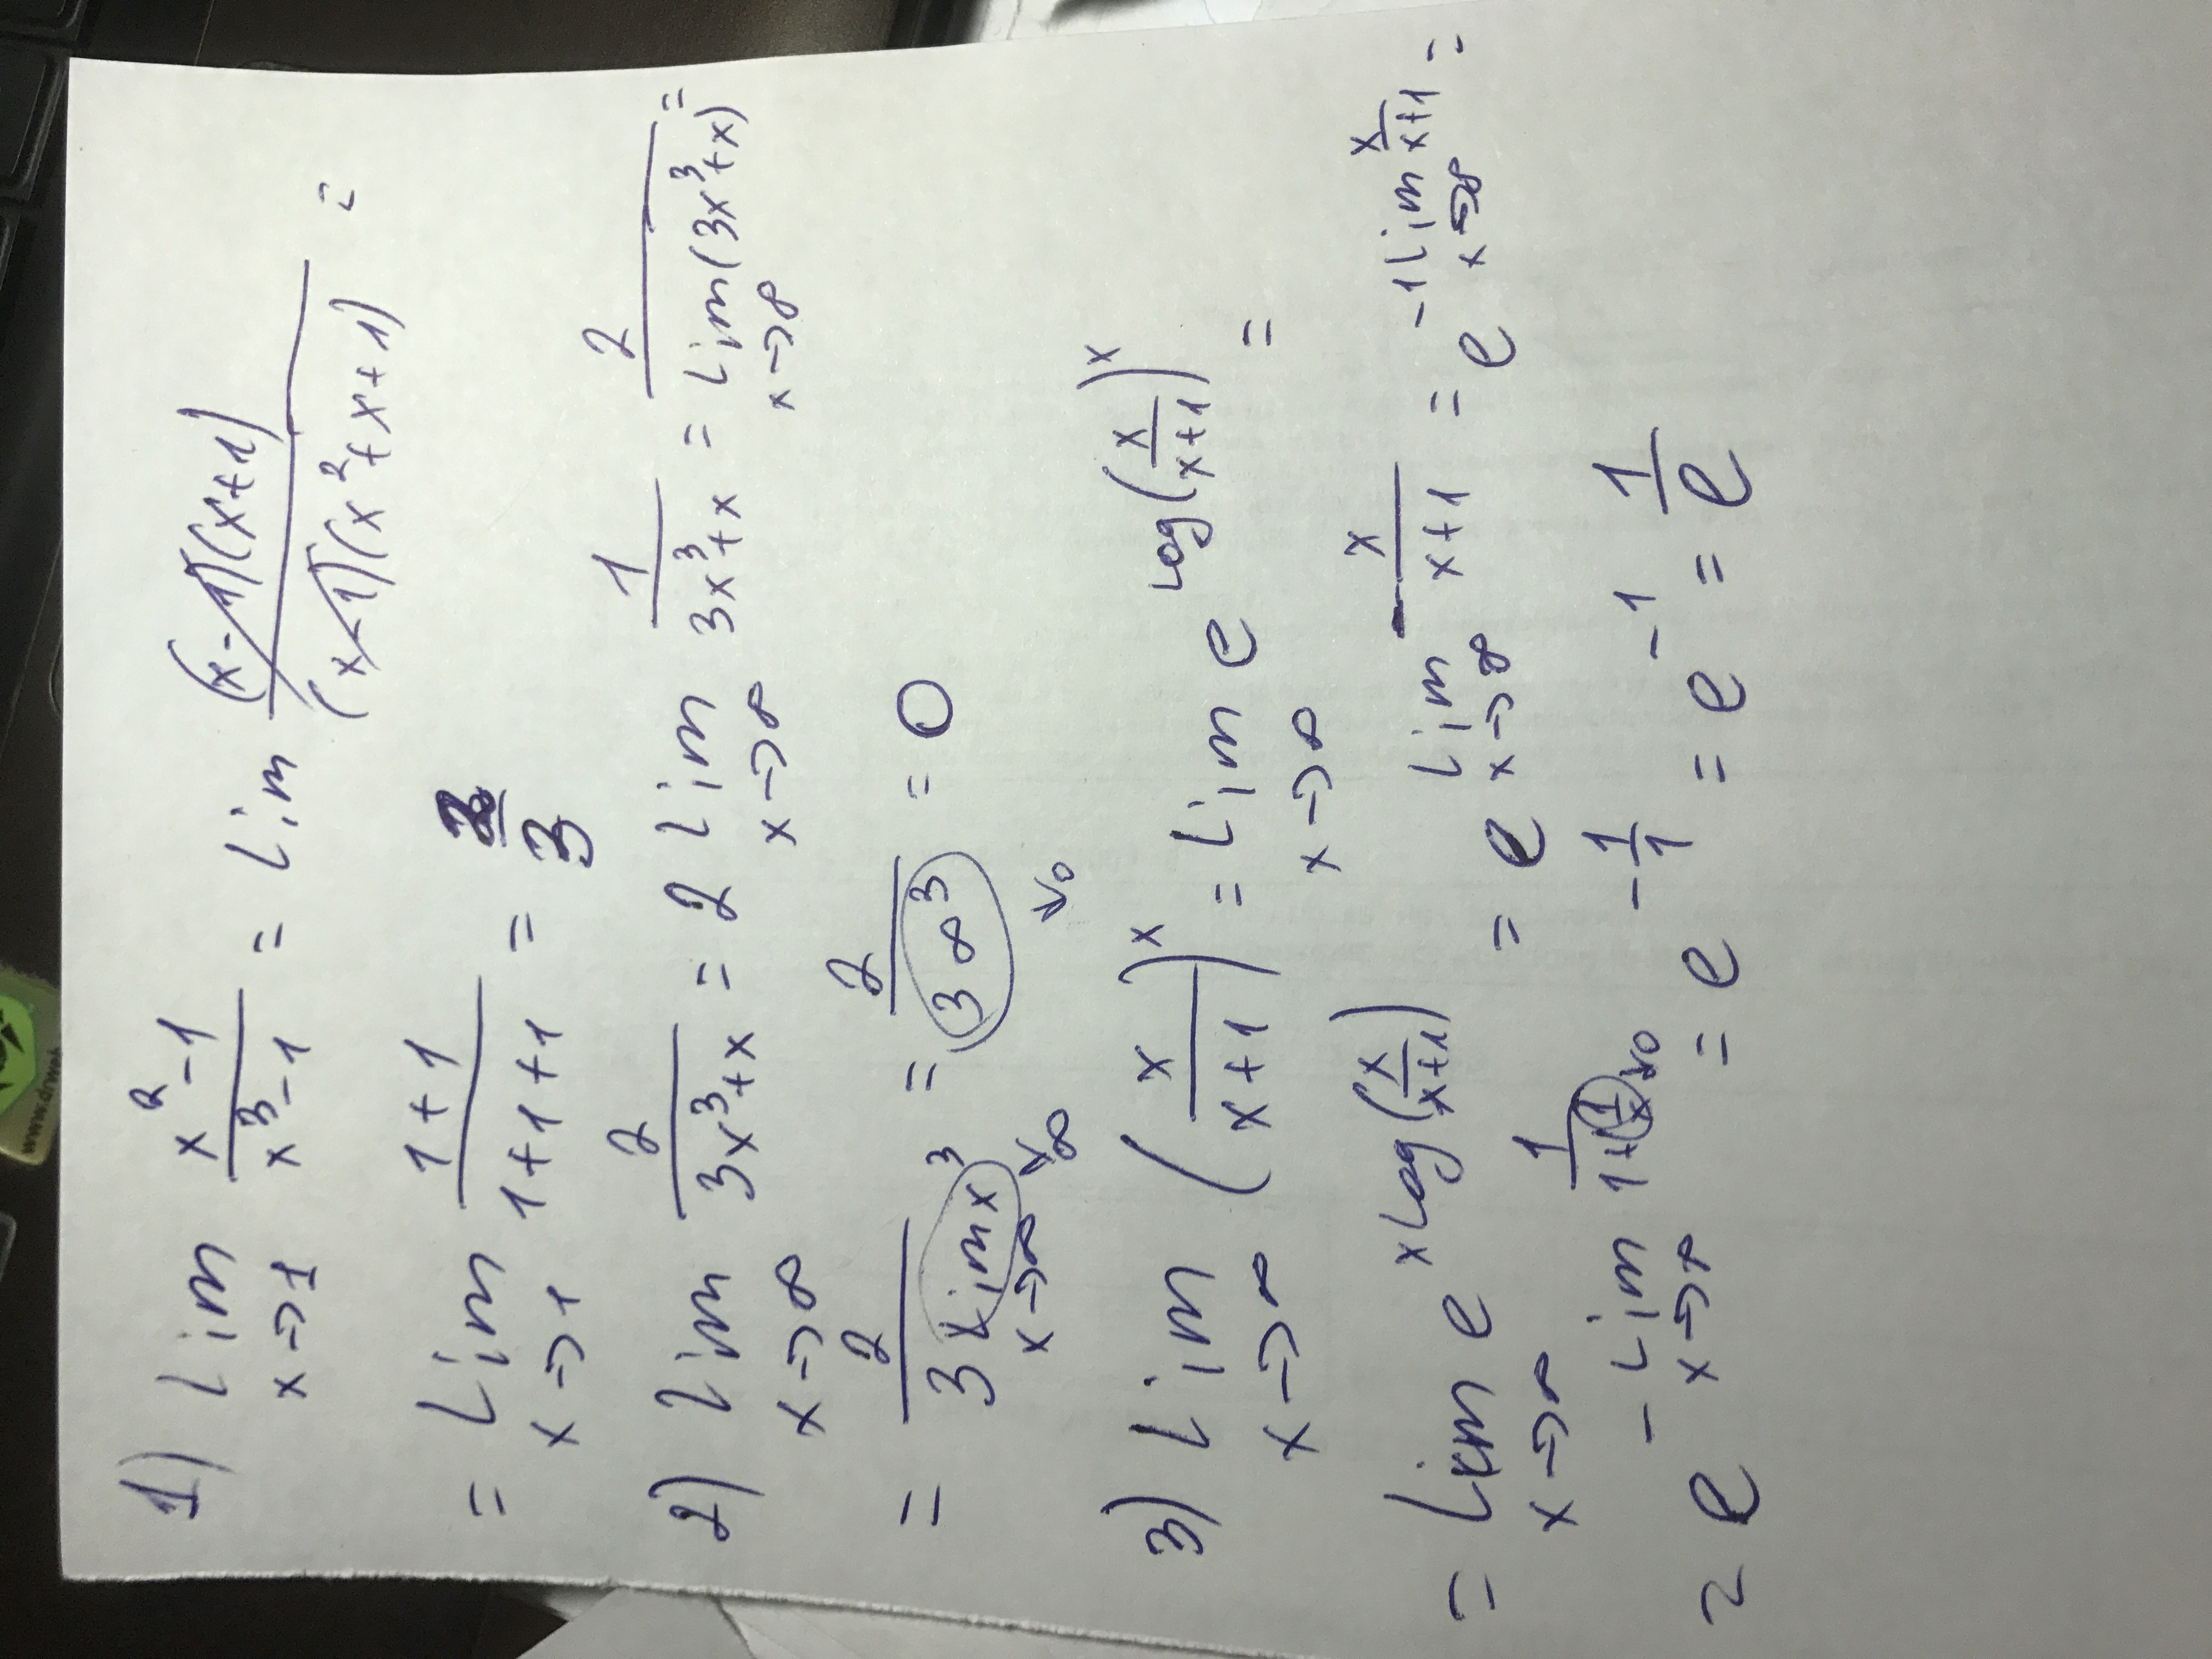 1) lim x→1 (x²-1)/(x³-1) = lim ((x-1)(x+1))/((x-1)(x²+x+1)) =
= lim x→1 (1+1)/(1+1+1) = 2/3
2) lim x→∞ 2/(3x³+x) = 2 lim x→∞ 1/(3x³+x) = 2/(lim x→∞ (3x³+x)) =
= 2/(3 lim x→∞ x³) →∞ = 2/(3∞³) →0 = 0
3) lim x→∞ (x/(x+1))^x = lim x→∞ e^(log(x/(x+1))^x) =
= lim x→∞ e^(x log(x/(x+1))) = e^(lim x→∞ -x/(x+1)) = e^(-1 lim x→∞ x/(x+1)) =
= e^(-lim x→∞ 1/(1+(1/x))) →0 = e^(-1/1) = e^(-1) = 1/e
www.drweb